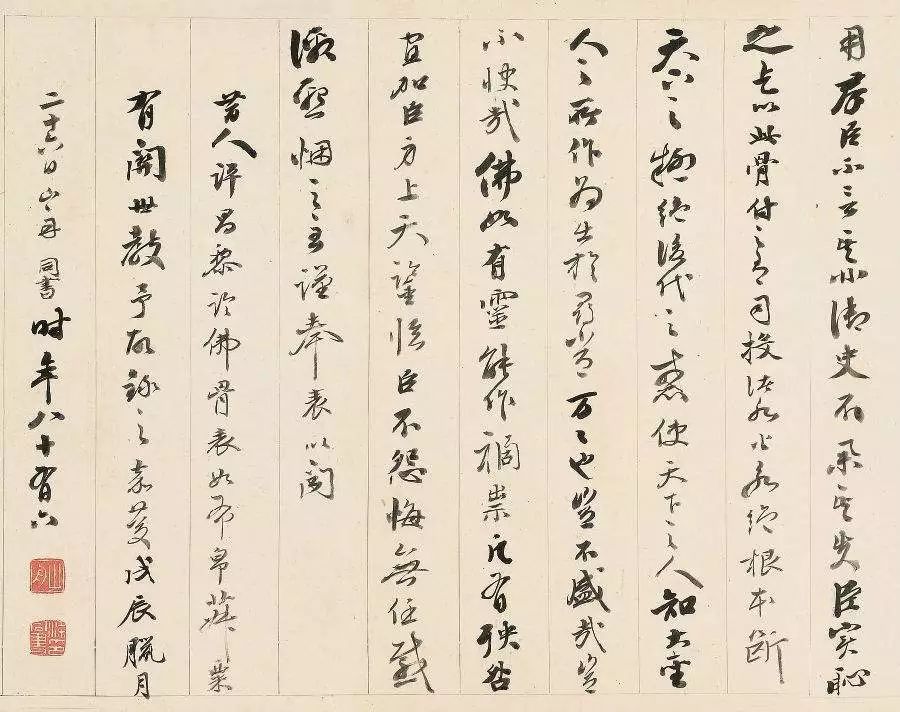 用群臣不言其非御史不舉其失臣實恥
之乞以此骨付之有司投諸水火永絕根本斷
天下之疑絕後代之惑使天下之人知大聖
人之所作為出於尋常万〻也豈不盛哉豈
不快哉佛如有靈能作禍祟凡有殃咎
宜加臣身上天鑒臨臣不怨悔無任感
激懇悃之至謹奉表以聞
昔人評昌黎論佛骨表如布帛菽粟
有關世教予故錄之嘉慶戊辰臘月
二十六日山舟同書時年八十有六